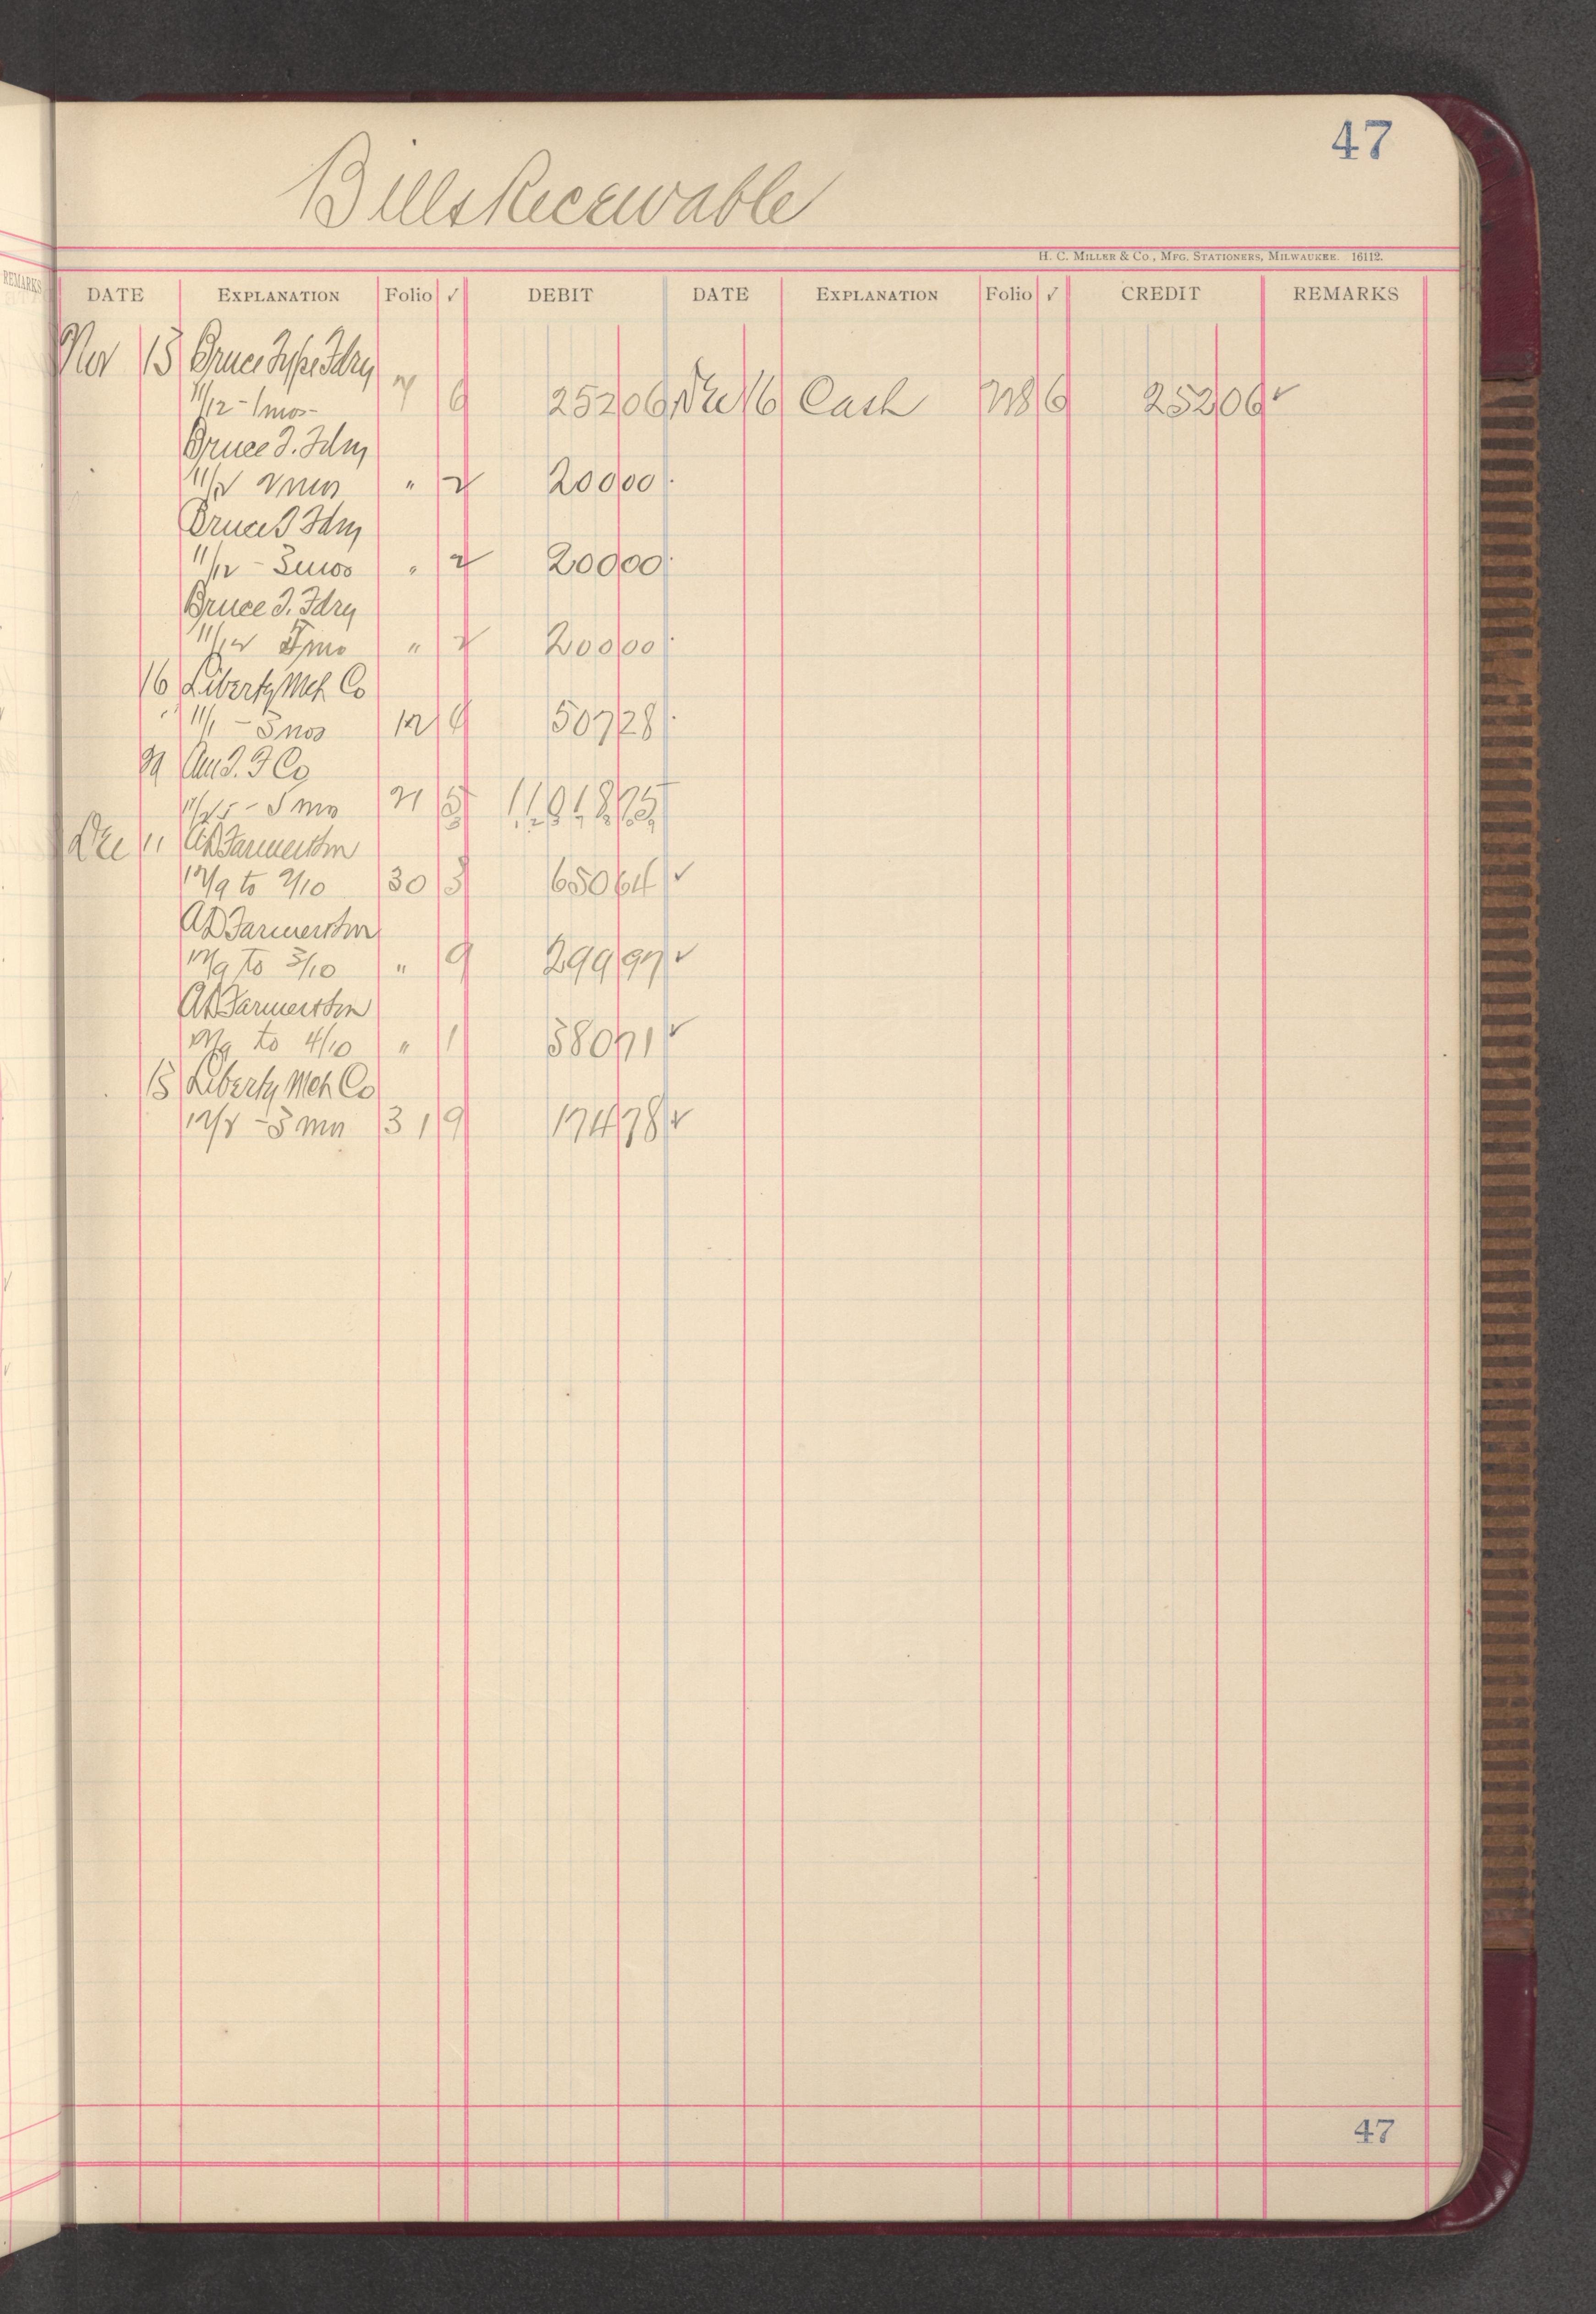 47
Bills Receivable
H. C. MILLER & CO., MFG. STATIONERS, MILWAUKEE. 16112.
REMARKS
DATE EXPLANATION Folio ✓ DEBIT DATE EXPLANATION Folio ✓ CREDIT REMARKS
Nov 13 Bruce Type Fdry
11/12 - 1 mos - 7 6 252 06 Dec 16 Cash 28 6 252 06 ✓
Bruce T. Fdry
11/12 2 mos " 2 200 00
Bruce T Fdry
11/12 - 3 mos " 2 200 00
Bruce T. Fdry
11/12 mo " 2 200 00
16 Liberty Mch Co
11/1 - 3 mos 12 9 507 28
Am T. F Co
mo 21
Dec 11 AD Farmer & Son
12/9 to 2/10 30 3 650 64 ✓
AD Farmer & Son
12/9 to 3/10 " 9 299 97 ✓
AD Farmer & Son
12/9 to 4/10 " 1 580 71 ✓
15 Liberty Mch Co
- 3 mo 31 9 174 78 ✓
47